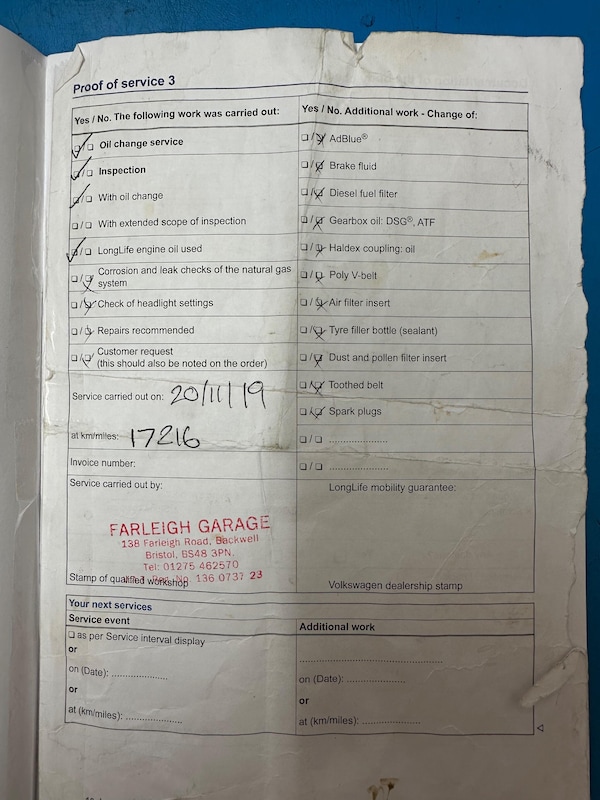 Proof of service 3
Yes / No. The following work was carried out:
☑/☐ Oil change service
☑/☐ Inspection
☑/☐ With oil change
☐/☐ With extended scope of inspection
☑/☐ LongLife engine oil used
☐/☑ Corrosion and leak checks of the natural gas
system
☐/☑ Check of headlight settings
☐/☑ Repairs recommended
☐/☑ Customer request
(this should also be noted on the order)
Service carried out on: 20/11/19
at km/miles: 17216
Invoice number:
Service carried out by:
FARLEIGH GARAGE
138 Farleigh Road, Backwell
Bristol, BS48 3PN.
Tel: 01275 462570
136 0737 23
Stamp of qualified workshop
Yes / No. Additional work - Change of:
☐/☒ AdBlue®
☐/☒ Brake fluid
☐/☒ Diesel fuel filter
☐/☒ Gearbox oil: DSG®, ATF
☐/☒ Haldex coupling: oil
☐/☒ Poly V-belt
☐/☒ Air filter insert
☐/☒ Tyre filler bottle (sealant)
☐/☒ Dust and pollen filter insert
☐/☒ Toothed belt
☐/☒ Spark plugs
☐/☐ .....................
☐/☐ .....................
LongLife mobility guarantee:
Volkswagen dealership stamp
Your next services
Service event
☐ as per Service interval display
or
on (Date): ....................
or
at (km/miles): ....................
Additional work
..................................................
on (Date): ....................
or
at (km/miles): ....................